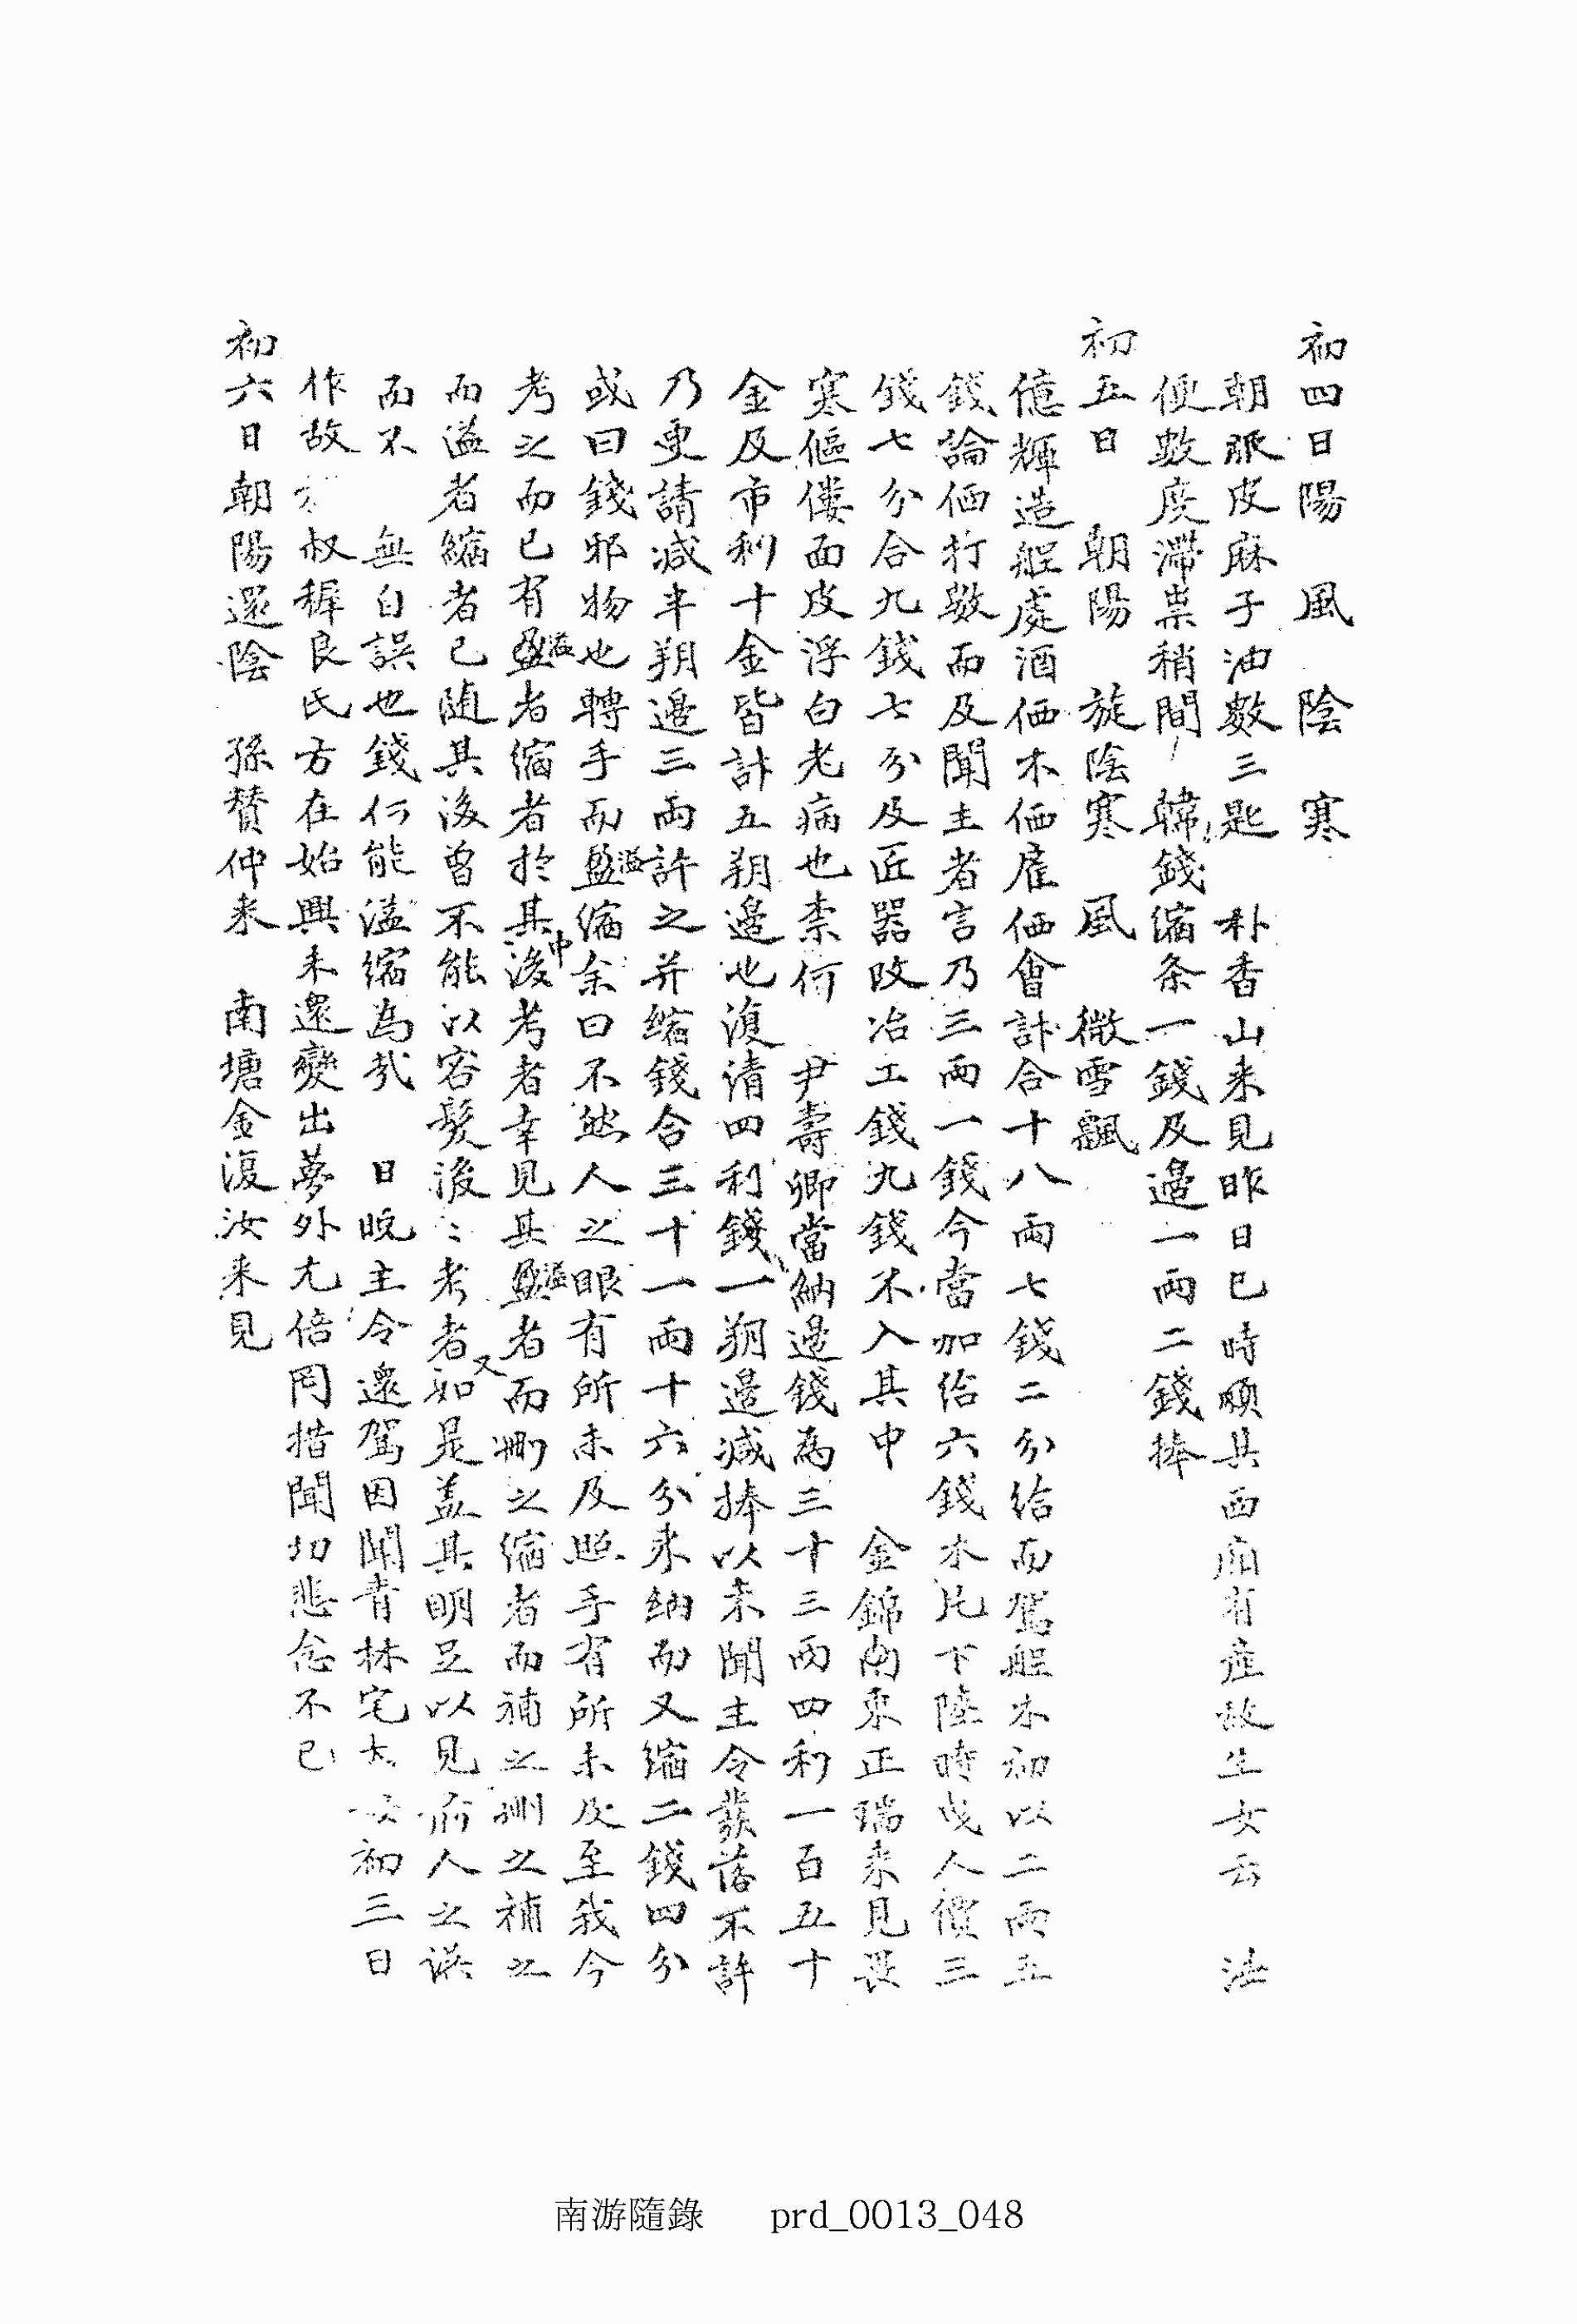 初四日陽 風 陰 寒
朝服皮麻子油數三匙 朴香山来見昨日巳時頗其西廂有產故生女云 法
便數度滯祟稍間 韓錢縮条一錢及邊一兩二錢捧
初五日 朝陽 旋陰寒 風 微雪飄
億輝造䑸處酒価木価雇価會計合十八兩七錢二分給而駕䑸木初以二兩五
錢論価打數而及聞主者言乃三兩一錢今當加給六錢木片下陸時曳人償三
錢七分合九錢七分及匠器改冶工錢九錢不入其中 金錦南東正瑞来見畏
寒傴僂面皮浮白老病也柰何 尹壽卿當納邊錢為三十三兩四利一百五十
金及市利十金皆計五朔邊也復清四利錢一朔邊減捧以未聞主令蔑落不許
乃更請减半朔邊三兩許之并縮錢合三十一兩十六分来納而又縮二錢四分
或曰錢邪物也轉手而盈溢縮余曰不然人之眼有所未及照手有所未及至我今
考之而已有盈溢者縮者於其中後考者幸見其盈溢者而刪之縮者而補之刪之補之
而溢者縮者已随其後曾不能以容髮後〻考者又如是盖其明足以見前人之誤
而不 無自誤也錢何能溢縮為㢤 日晩主令還駕因聞青林宅 初三日
作故 叔穉良氏方在始興未還變出夢外尤倍罔措聞切悲念不已
初六日朝陽還陰 孫賛仲来 南塘金復汝来見
南游隨錄 prd_0013_048